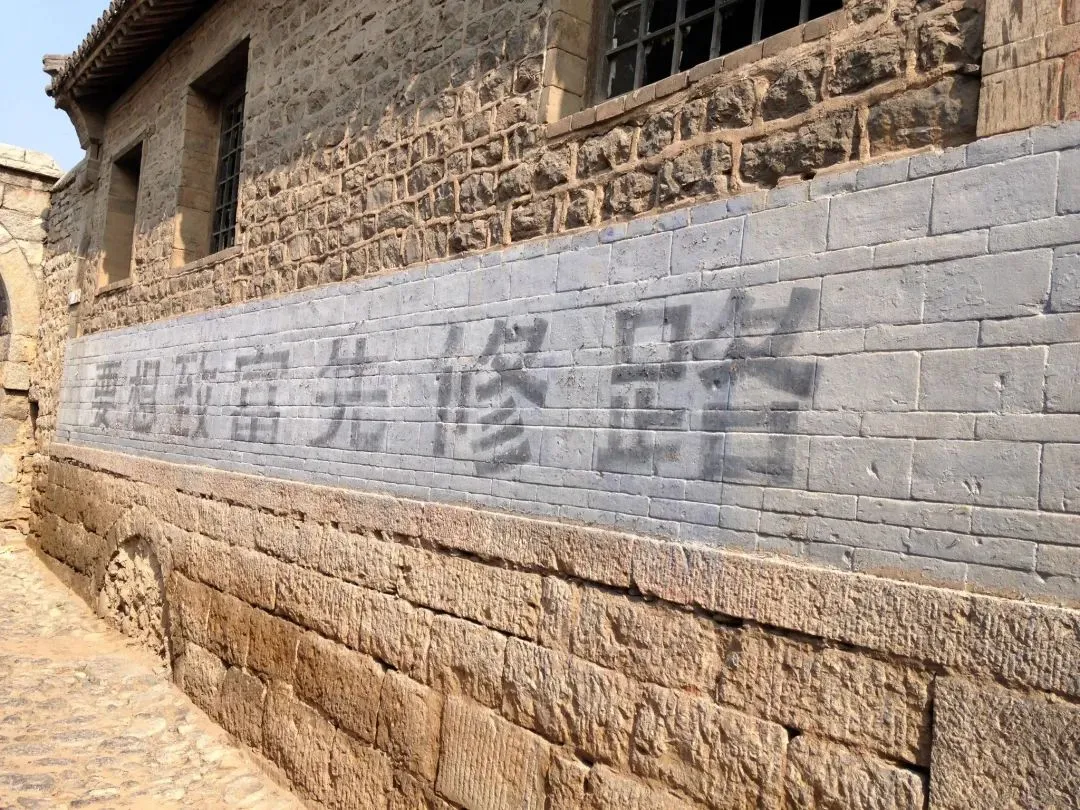 要想致富先修路